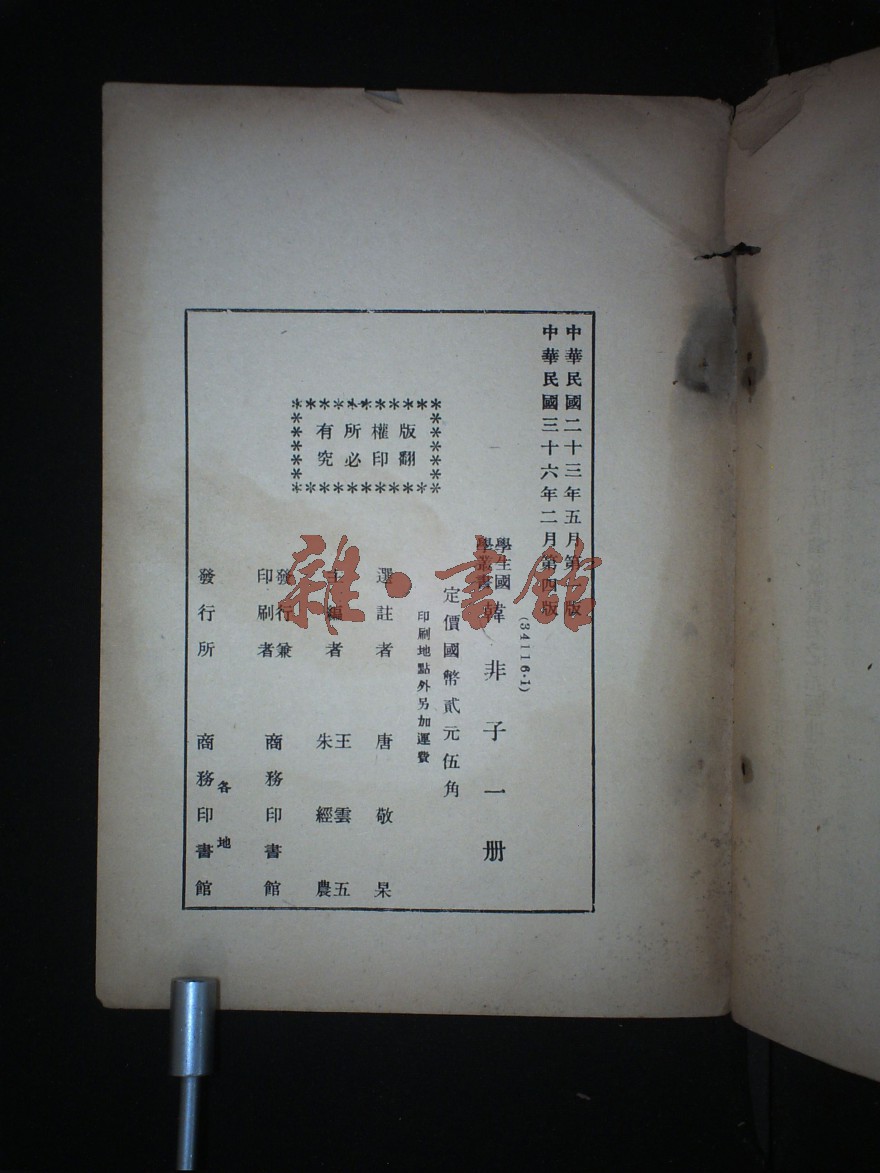 中華民國二十三年五月第一版
中華民國三十六年二月第四版
(34116·1)
學生國學叢書
韓非子一册
定價國幣貳元伍角
印刷地點外另加運費
版權所有
翻印必究
選註者 唐敬杲
主編者 王雲五 朱經農
發行兼印刷者 商務印書館
各地
發行所 商務印書館
雜·書館